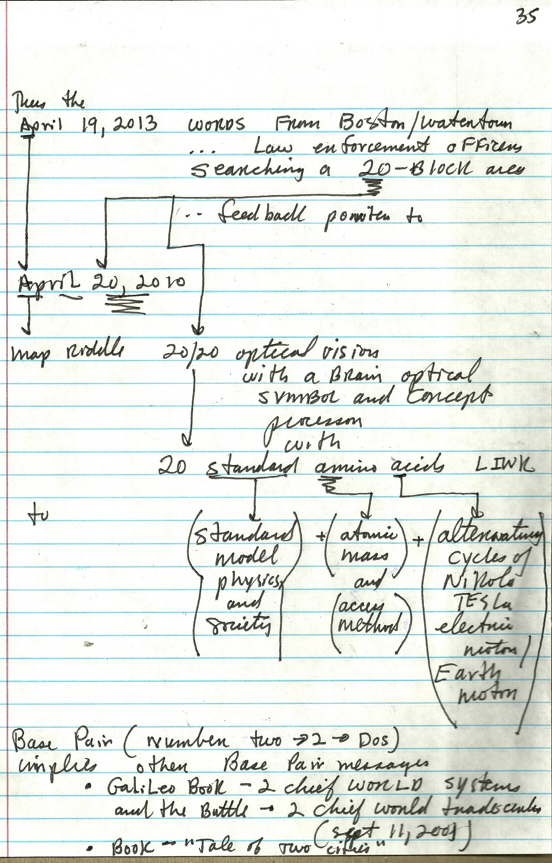 35
Thus the
April 19, 2013 words From Boston/Watertown
... Law enforcement officers
searching a 20-Block area
... feedback pointer to
April 20, 2010
map Riddle 20/20 optical vision
with a Brain optical
symbol and concept
processor
with
20 standard amino acids LINK
to
(standard model physics and society) + (atomic mass and (access method) + (alternating cycles of Nikola TESLA electric motor/ Earth motor)
Base Pair (number two → 2 → Dos)
implies other Base Pair messages
• Galileo Book - 2 chief WORLD systems
and the Battle → 2 chief world tradecenters
(sept 11, 2001)
• Book - "Tale of two cities"